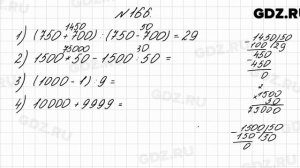 GDZ.RU
№ 166.
1450 50
1) (750 + 700) : (750 - 700) = 29
75000 30
2) 1500 · 50 - 1500 : 50 =
3) (1000 - 1) · 9 =
4) 10000 + 9999 =
1450 | 50
100 | 29
450
450
0
1500
50
75000
1500 | 50
150 | 30
0
GDZ.RU